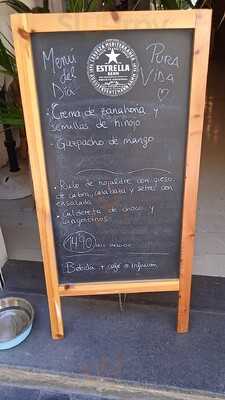 Menú
del
Día
CERVEZA MEDITERRÁNEA
ESTRELLA
DAMM
PURA
VIDA
- Crema de zanahoria y
semillas de hinojo
- Gazpacho de mango
- Rulo de hojaldre con queso
de cabra, calabaza y setas con
ensalada
- Caldereta de choco y
langostinos
14,90
Bebida + café o infusión